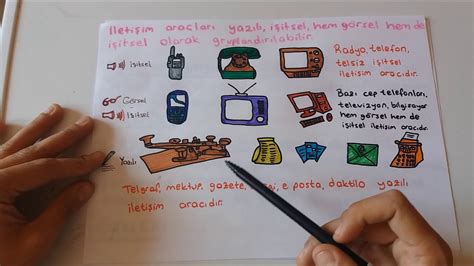 İletişim araçları yazılı, işitsel, hem görsel hem de
işitsel olarak gruplandırılabilir.
İşitsel
Radyo, telefon,
telsiz işitsel
iletişim aracıdır.
Görsel
İşitsel
Bazı cep telefonları,
televizyon, bilgisayar
hem görsel hem de
işitsel iletişim aracıdır.
Yazılı
Telgraf, mektup, gazete, e posta, daktilo yazılı
iletişim aracıdır.